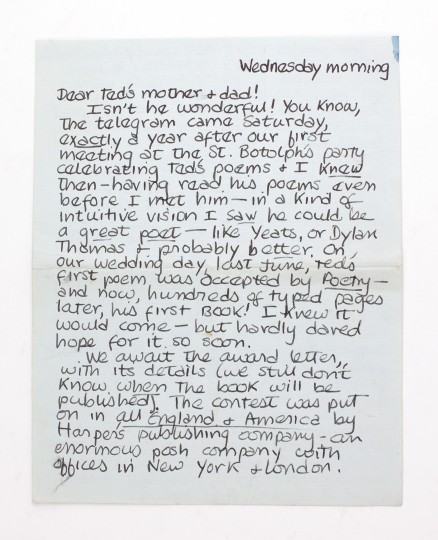 Wednesday morning
Dear Ted's mother & dad!
Isn't he wonderful! You know,
the telegram came Saturday,
exactly a year after our first
meeting at the St. Botolph's party
celebrating Ted's poems & I knew
then—having read his poems even
before I met him—in a kind of
intuitive vision I saw he could be
a great poet—like Yeats, or Dylan
Thomas & probably better. On
our wedding day, last June, Ted's
first poem was accepted by Poetry—
and now, hundreds of typed pages
later, his first BOOK! I knew it
would come—but hardly dared
hope for it so soon.
We await the award letter,
with its details (we still don't
know when the book will be
published). The contest was put
on in all England & America by
Harper's publishing company—an
enormous posh company with
offices in New York & London.